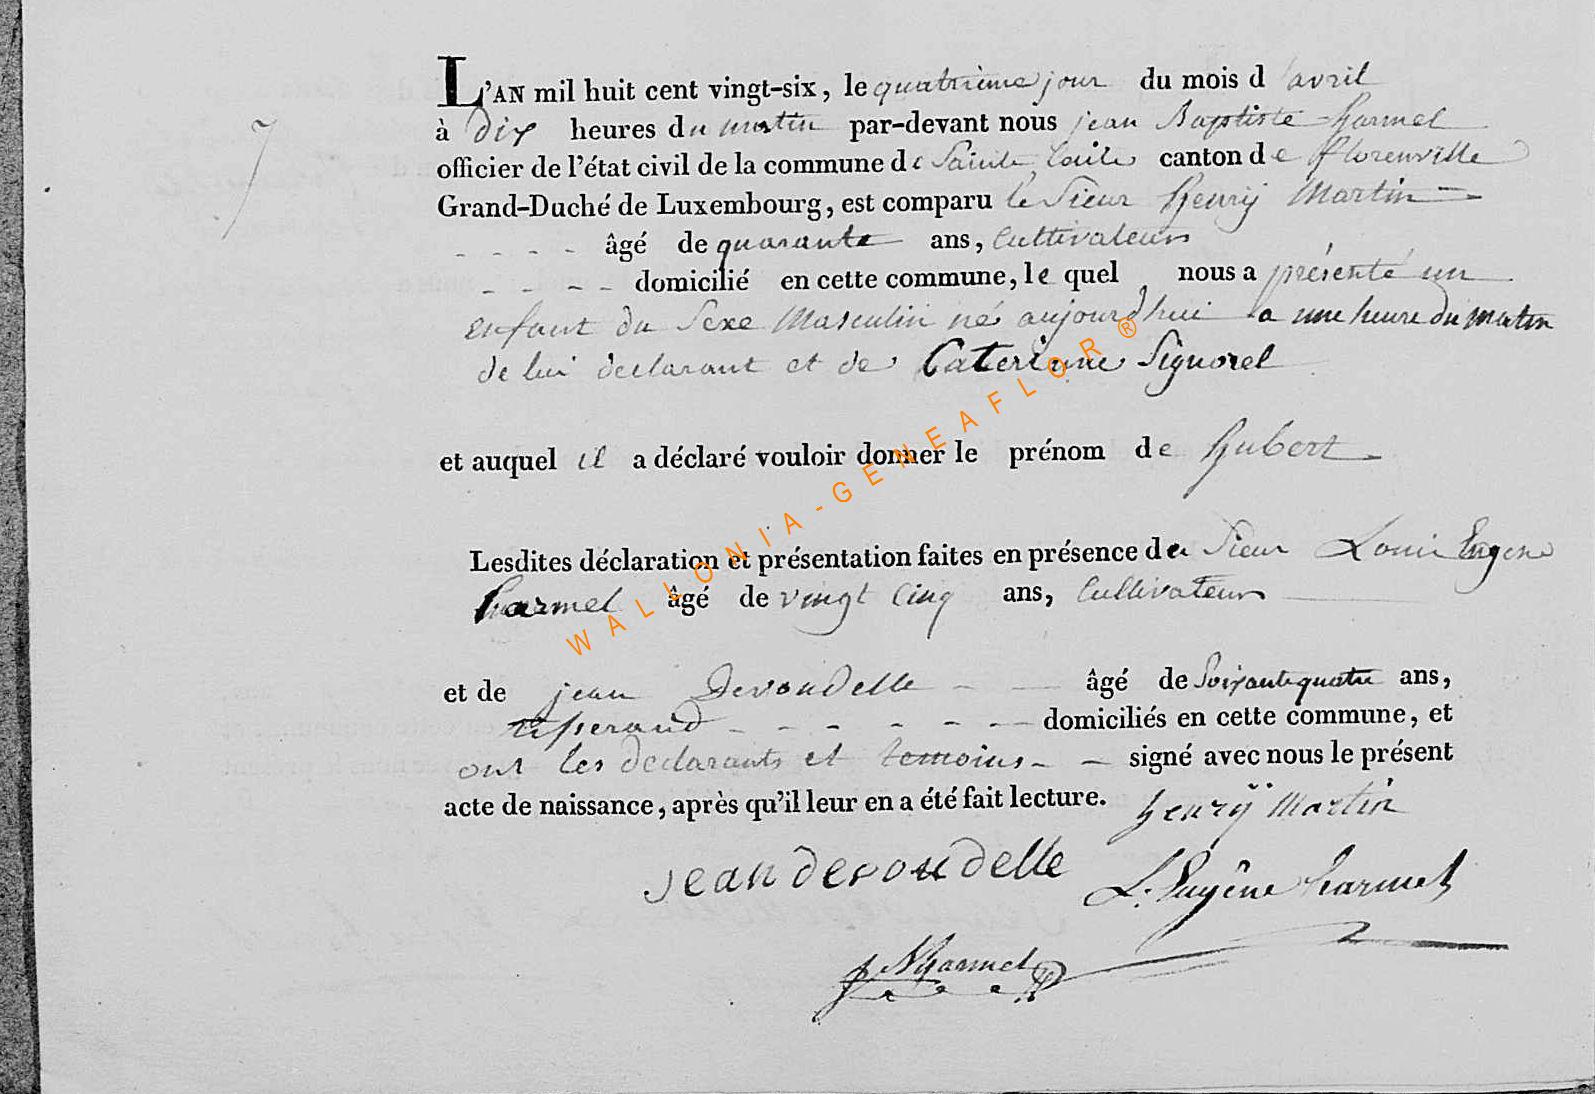 L'AN mil huit cent vingt-six, le quatrième jour du mois d'avril
7
à dix heures du matin par-devant nous jean Baptiste harmel
officier de l'état civil de la commune de Sainte Cecile canton de florenville
Grand-Duché de Luxembourg, est comparu le Sieur henrÿ Martin
âgé de quarante ans, Cultivateur
domicilié en cette commune, le quel nous a présenté un
enfant du Sexe Masculin né aujourd'hui a une heure du matin
de lui declarant et de Caterinne Signorel
et auquel il a déclaré vouloir donner le prénom de hubert
Lesdites déclaration et présentation faites en présence de Sieur Louis Eugene
harmel âgé de vingt Cinq ans, Cultivateur
et de jean Devoudelle âgé de Soixante quatre ans,
domiciliés en cette commune, et
ont les declarants et temoins signé avec nous le présent
acte de naissance, après qu'il leur en a été fait lecture. henrÿ Martin
jean devoudelle L. Eugêne harmel
harmel
WALLONIA-GENEAFLOR®